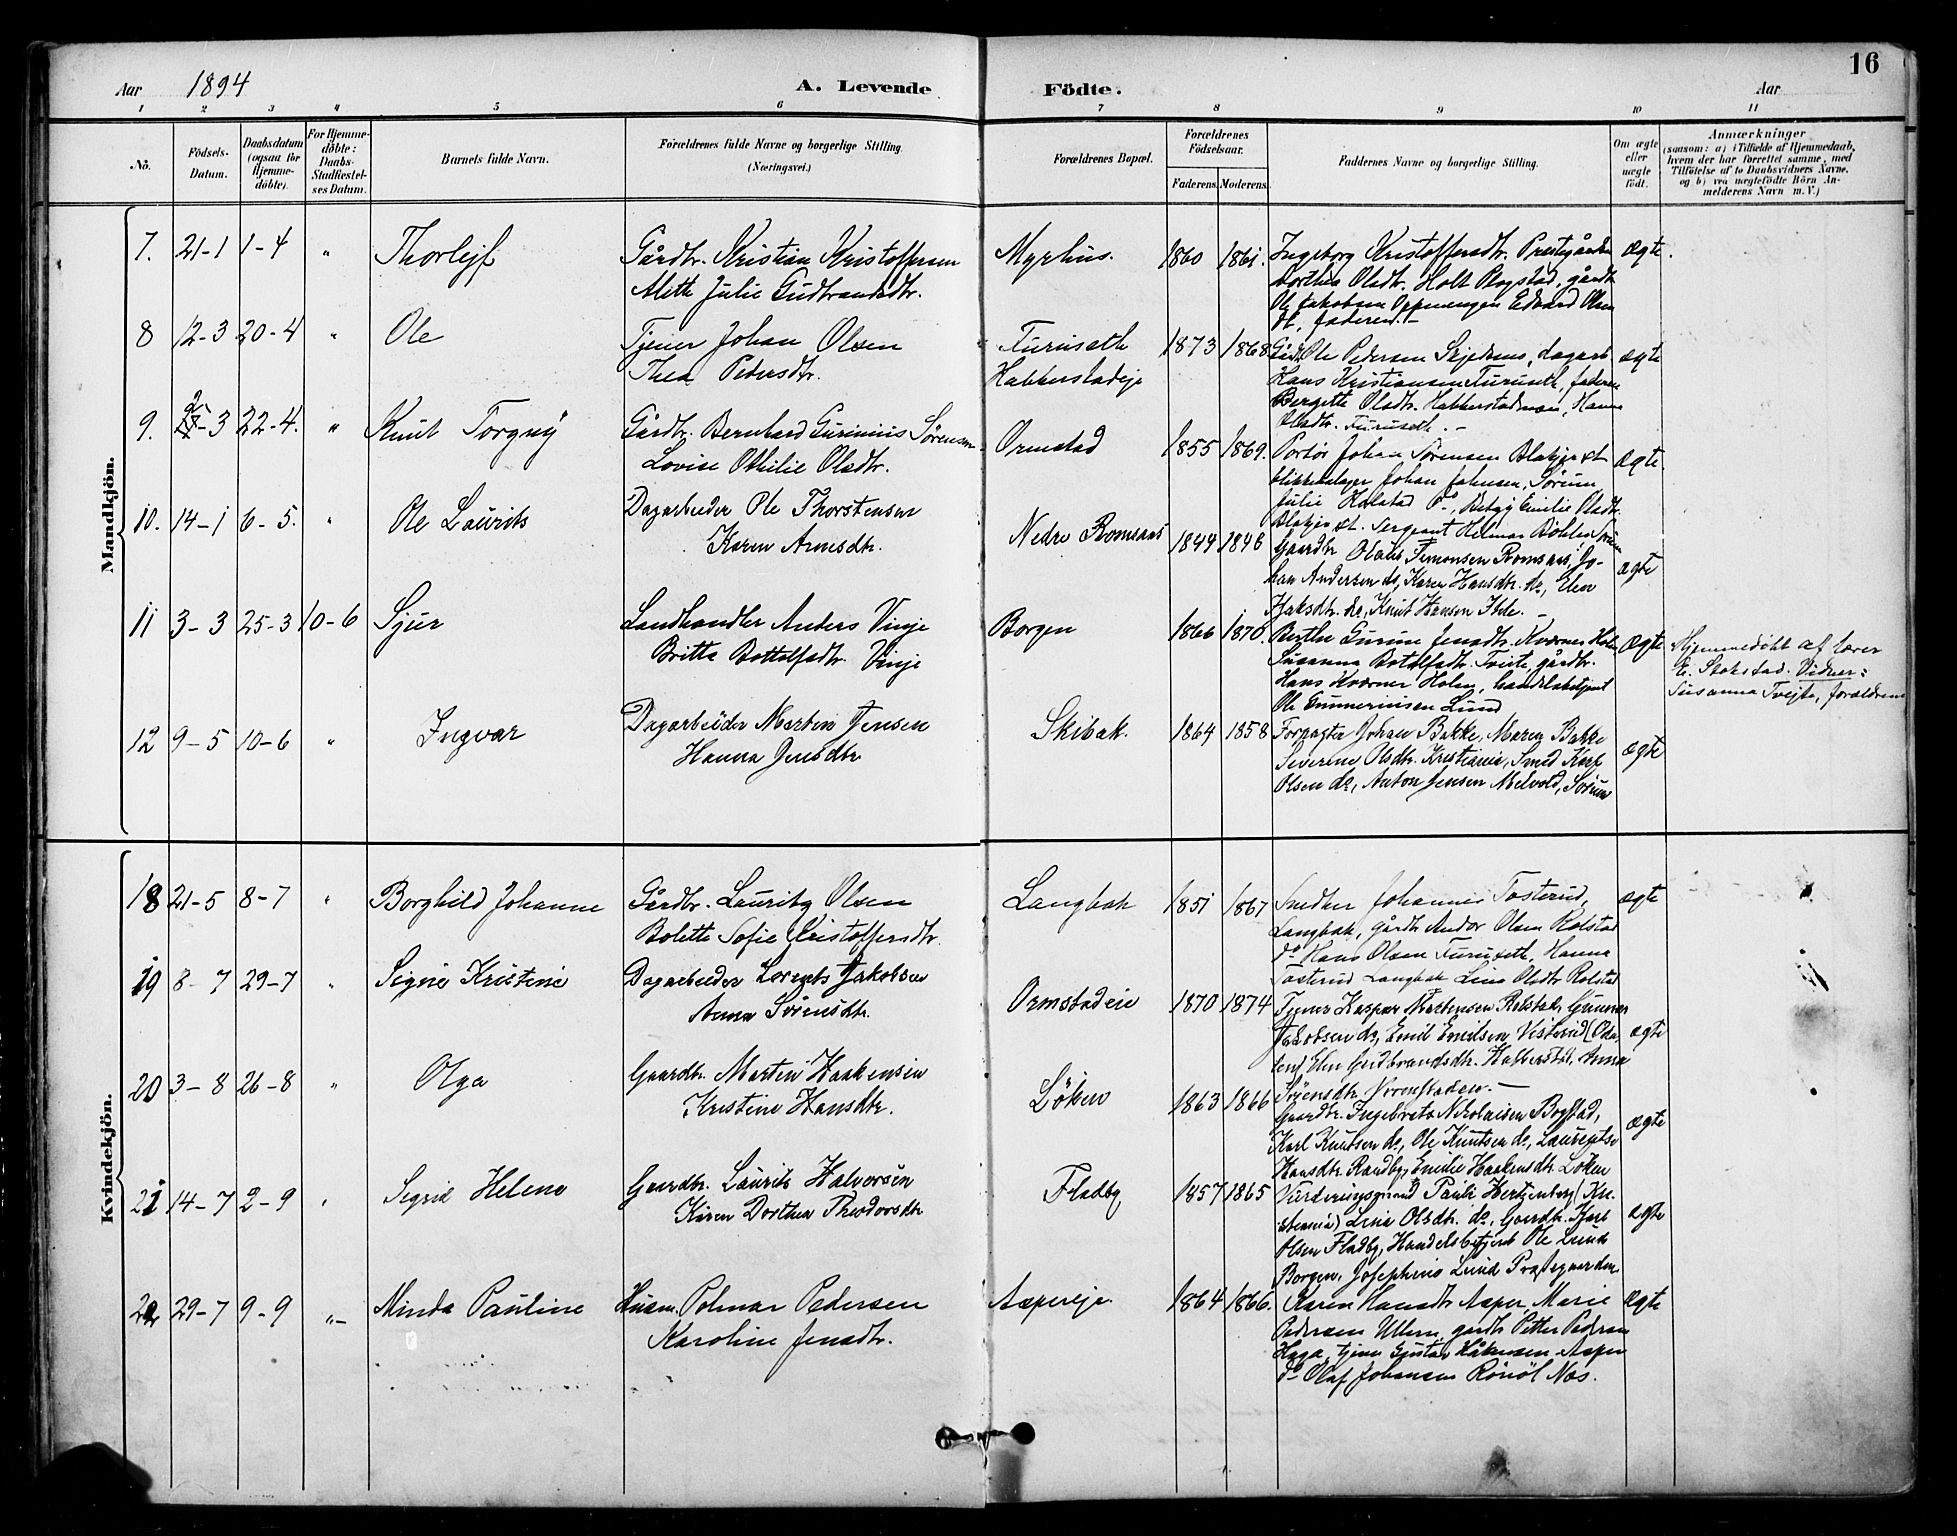 16
Aar 1894 A. Levende Födte. Aar
1 2 3 4 5 6 7 8 9 10 11
No.
Födsels-
Datum.
Daabsdatum
(ogsaa for
Hjemme-
döbte).
For Hjemme-
döbte:
Daabs-
Stadfæstel-
ses Datum.
Barnets fulde Navn.
Forældrenes fulde Navne og borgerlige Stilling.
(Næringsvei.)
Forældrenes Bopæl.
Forældrenes
Födselsaar.
Faderens. Moderens.
Faddernes Navne og borgerlige Stilling.
Om ægte
eller
uægte
födt.
Anmærkninger
(saasom: a) i Tilfælde af Hjemmedaab,
hvem der har forrettet samme, med
Tilföielse af to Daabsvidners Navne.
og b) ved uægtefödte Börn An-
melderens Navn m. V.)
Mandkjön.
7. 21-1 1-4 " Thorlejf
Gårdbr. Kristian Kristoffersen
Alette Julie Gudbrandsdtr.
Myrhus. 1860 1861.
Ingeborg Kristoffersdtr. Prestgården
Dorthea Olsdtr. Holt Rogstad, gårdb.
Ole Jakobsen Oppenengen Edvard Olsen
faderen.-
Ægte.
8 12-3 20-4 " Ole
Tjener Johan Olsen
Thea Pedersdtr.
Furuseth
Habberstadeje
1873 1868
Gårdb. Ole Pedersen Skjedsmo, dagarb.
Hans Kristiansen Furuseth, faderen
Bergitte Olsdtr. Habberstadmoen, Hanna
Olsdtr. Furuseth.-
ægte
9. 25-3 22-4. " Knut Torgny
Gårdbr. Bernhard Gurinius Sørensen
Lovise Othilie Olsdtr.
Ormstad 1855 1869.
Portör Johan Sørensen Blakjer st.
blikkenslager Johan Johnsen, Sørum
Julie Holstad Do, Betzy Emilie Olsdtr.
Blakjer st. Sergeant Helmer Böhler Sørum
Ægte
10. 14-1 6-5. " Ole Laurits
Dagarbeider Ole Thorstensen
Karen Arnesdtr.
Nedre Romsaas 1844 1848
Gaardbr. Olaus Simonsen Romsaas, Jo-
han Andersen do, Karen Hansdtr. do, Elen
Isaksdtr. do, Knut Hansen Ihle.-
ægte
11 3-3 25-3 10-6 Sjur
Landhandler Anders Vinje
Britta Bottolfsdtr. Vinje
Borgen 1866 1870.
Berthe Gurine Jensdtr. Kværner Holm
Susanna Botolfsdtr. Tveite, gårdbr.
Hans Kværner Holm, handelsbetjent
Ole Gunneriusen Lund
Ægte
Hjemmedöbt af lærer
E. Stokstad. Vidner:
Susanna Tvejte, forældrene
12 9-5 10-6 " Ingvar
Dagarbeider Martin Jensen
Hanna Jensdtr.
Skibak. 1864 1858
Forpagter Johan Bakke, Maren Bakke
Severine Olsdtr. Kristiania, Smed Karl
Olsen do, Anton Jensen Melvold, Sörum
ægte
Kvindekjön.
18 21-5 8-7 " Borghild Johanne
Gårdbr. Lauritz Olsen
Bolette Sofie Kristoffersdtr.
Langbak 1851 1867
Snedker Johannes Tosterud,
Langbak, gårdb. Andor Olsen Rolstad
do Hans Olsen Furuseth, Hanna
Tosterud Langbak Lina Olsdtr. Rolstad
ægte
19 8-7 29-7 " Signe Kristine
Dagarbeider Lorents Jakobsen
Anna Sörensdtr.
Ormstadeie 1870 1874
Tjener Kasper Mortensen Rolstad, Gunnar
Jakobsen do, Emil Emilsen Visterud (Oda-
len) Elen Gudbrandsdtr. Habberstad, Anna
Sörensdtr. Ormstadeie.-
ægte
20 3-8 26-8 " Olga
Gaardbr. Martin Haakensen
Kristine Hansdtr.
Löken 1863 1866
Gaardbr. Ingebret Nikolaisen Bogstad,
Karl Knutsen do, Ole Knutsen do, Laurentse
Hansdtr. Randby, Emilie Haakensdtr. Löken
ægte
21 14-7 2-9 " Sigrid Helene
Gaardbr. Laurits Halvorsen
Karen Dorthea Theodorsdtr.
Fladby 1857 1865
Vurderingsmand Pauli Hertzenberg (Kri-
stiania) Lina Olsdtr. do, Gaardbr. Karl
Olsen Fladby, Handelsbetjent Ole Lund
Borgen, Josephine Lund Præstgaarden.
ægte
22 29-7 9-9 "- Minda Pauline
Husm. Polmar Pedersen
Karoline Jensdtr.
Aspereje. 1864 1866.
Karen Hansdtr. Asper, Marie
Pedersen Ullern, gårdb. Petter Pedersen
Haga, tjener Gustav Håkensen Asper
do Olaf Johansen Nes.
Ægte